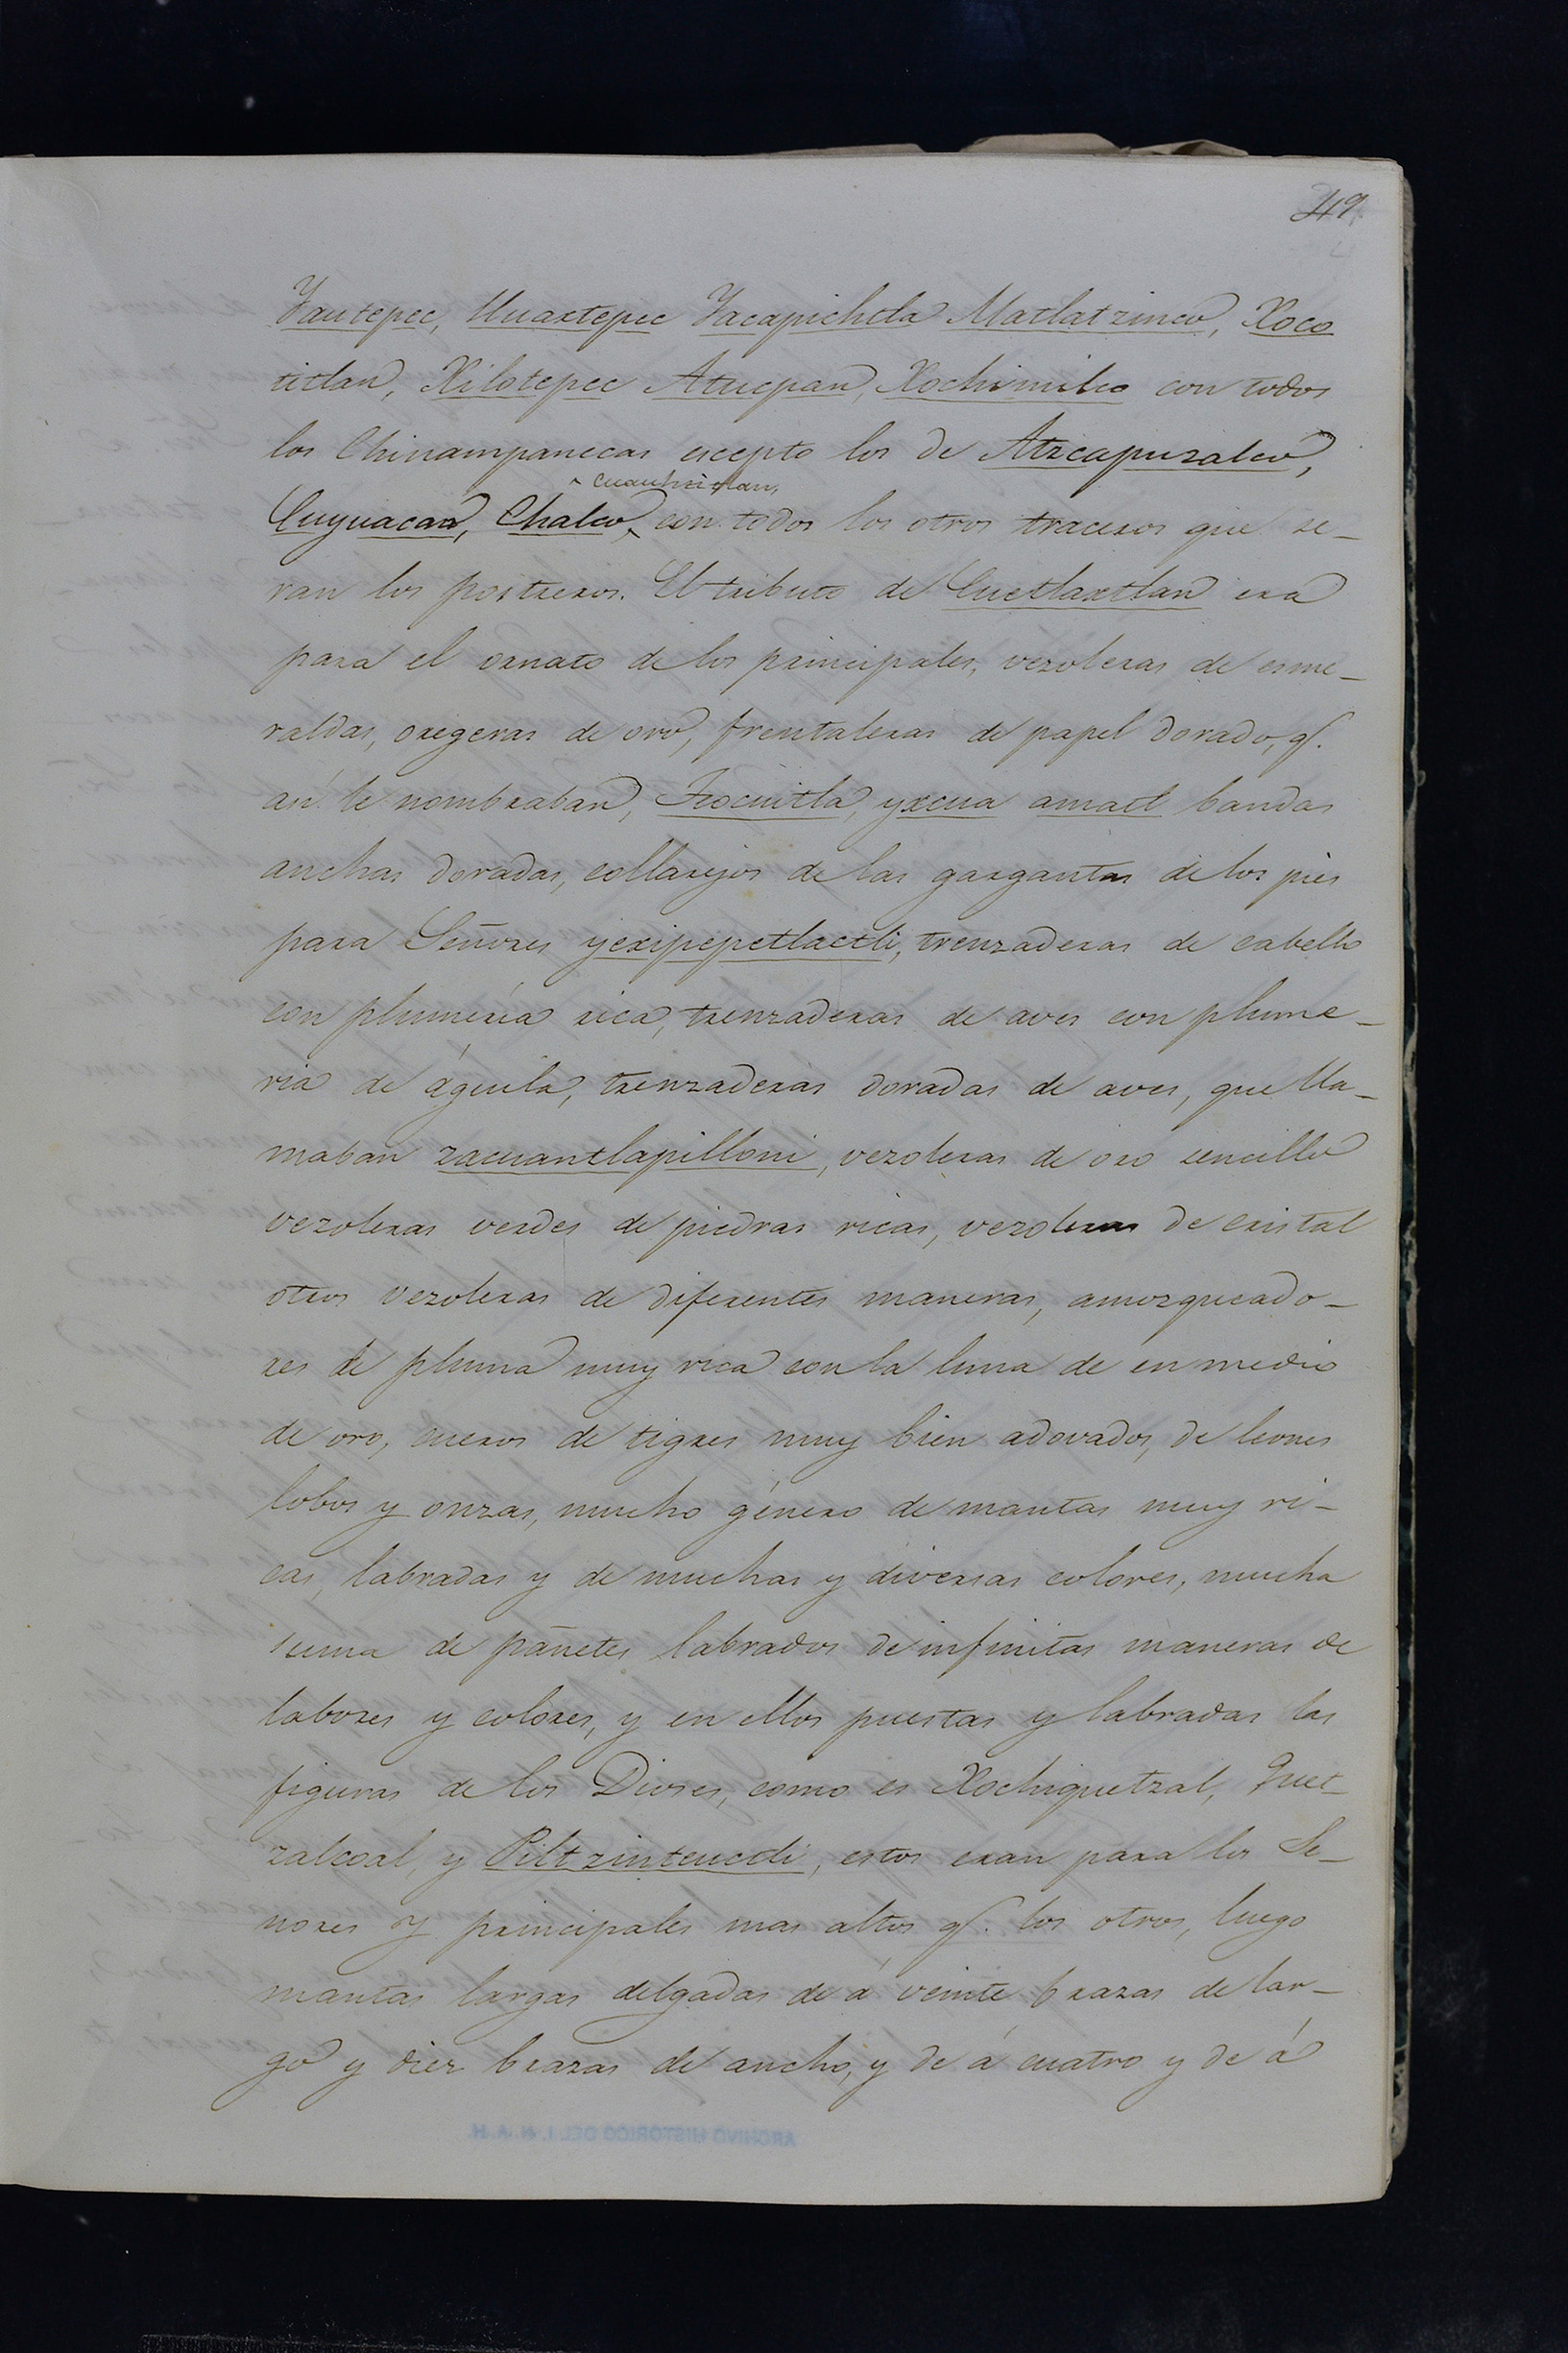 49
Yautepec, Huaxtepec Yacapichtla Matlatzinco, Xoco
titlan, Xilotepec Atucpan, Xochimilco con todos
los Chinampanecas escepto los de Atzcapuzalco,
^ Cuauhtitlan,
Cuyuacan, Chalco, con todos los otros traceros que se-
ran los postreros. El tributo de Cuetlaxtlan era
para el ornato de los principales, vezoleras de esme-
raldas, oregeras de oro, frentaleras de papel dorado, q.
asi le nombraban, Teocuitla, yxcua amatl bandas
anchas doradas, collarejos de las gargantas de los pies
para Señores yexipepetlactli, trenzaderas de cabello
con plumería rica, trenzaderas de aves con plume-
ria de águila, trenzaderas doradas de aves, que lla-
maban zacuantlapilloni, vezoleras de oro sencillo
vezoleras verdes de piedras ricas, vezoleras de cristal
otros vezoleras de diferentes maneras, amozqueado-
res de pluma muy rica con la luna de en medio
de oro, cueros de tigres muy bien adovados, de leones
lobos y onzas, mucho género de mantas muy ri-
cas, labradas y de muchas y diversas colores, mucha
suma de pañetes labrados de infinitas maneras de
labores y colores, y en ellos puestas y labradas las
figuras de los Dioses, como es Xochiquetzal, Quet-
zalcoal, y Piltzinteuctli, estos eran para los Se-
nores y principales mas altos q. los otros, luego
mantas largas delgadas de á veinte brazas de lar-
go y diez brazas de ancho, y de á cuatro y de á
ARCHIVO HISTORICO DEL I. N. A. H.